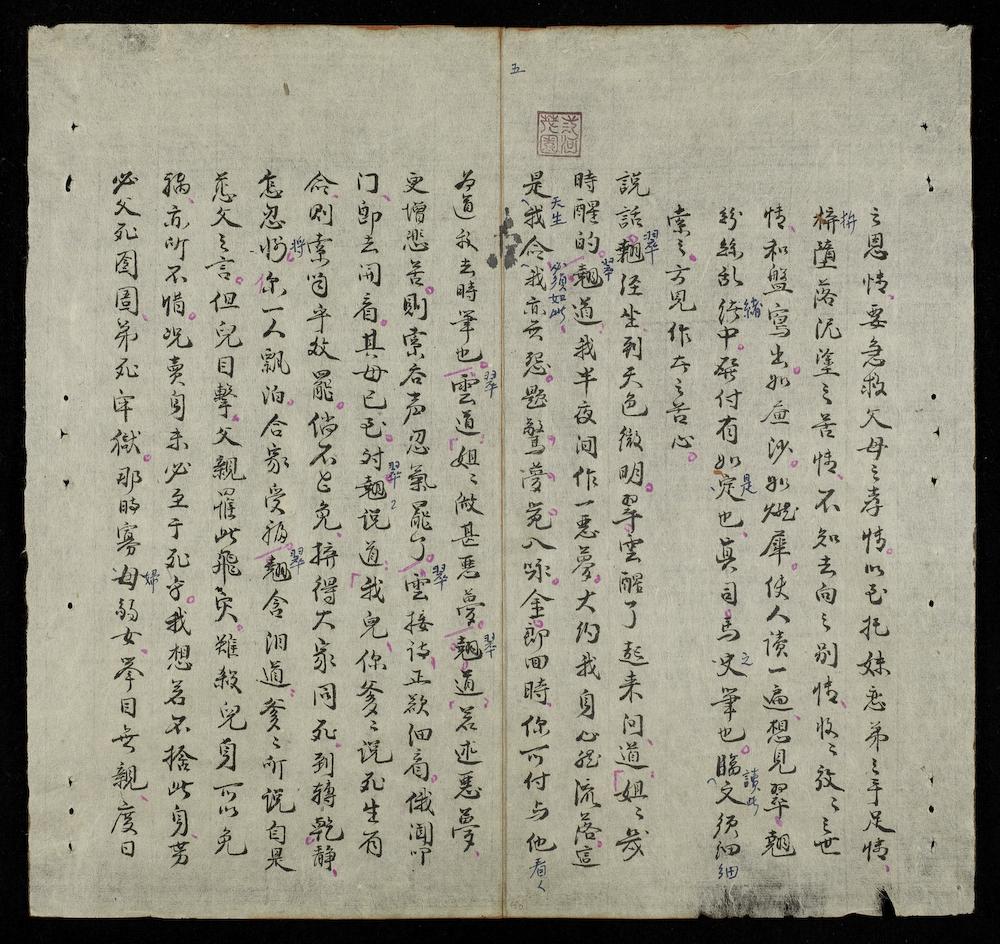 五
之恩情、要急救父母之孝情。以至托妹悉弟之手足情、
拚
梓墮落泥塗之苦情、不知去向之别情、收之放之之世
情、和盤寫出。如鹿沙。如燃犀。使人读一遍。想見翠翹
紛絲乱 中。 付有如定也。真司馬史筆也。臨文须细
緒
是
之
讀此
細
索之。方見作本之苦心。
說話。翹徑坐到天色微明。翠雲醒了起来问道。姐之幾
翠
時醒的。翹道。我半夜间作一悪夢。大约我身必然流落。這
翠
是我命。我亦无怨。題驚夢 入咏金郎回時、你可付与他
天生
必須如此
看
為道我去時筆也。雲道。姐之做甚悪夢。翹道。若述悪夢、
翠
翠
更增悲苦。則索吞声忍氣罷了。雲接诗正欲细看。俄聞叩
翠
门、即去開看。其母已至。对翹說道。我兒、你爹之說死生有
翠
命、則索 罷。倘不 免、拚得大家同死。到轉乾静。
怎忍将你一人飘泊。合家受福。翹含泪道。爹之所説自是
將
翠
慈父之言。但兒目擊父親罹此飛灾。雖殺兒身。可以免
禍、亦所不惜。况賣身未必至于死乎。我想若不捨此身、势
必父死囹圄、弟死牢獄。那時寡母弱女、舉目无親、度日
婦